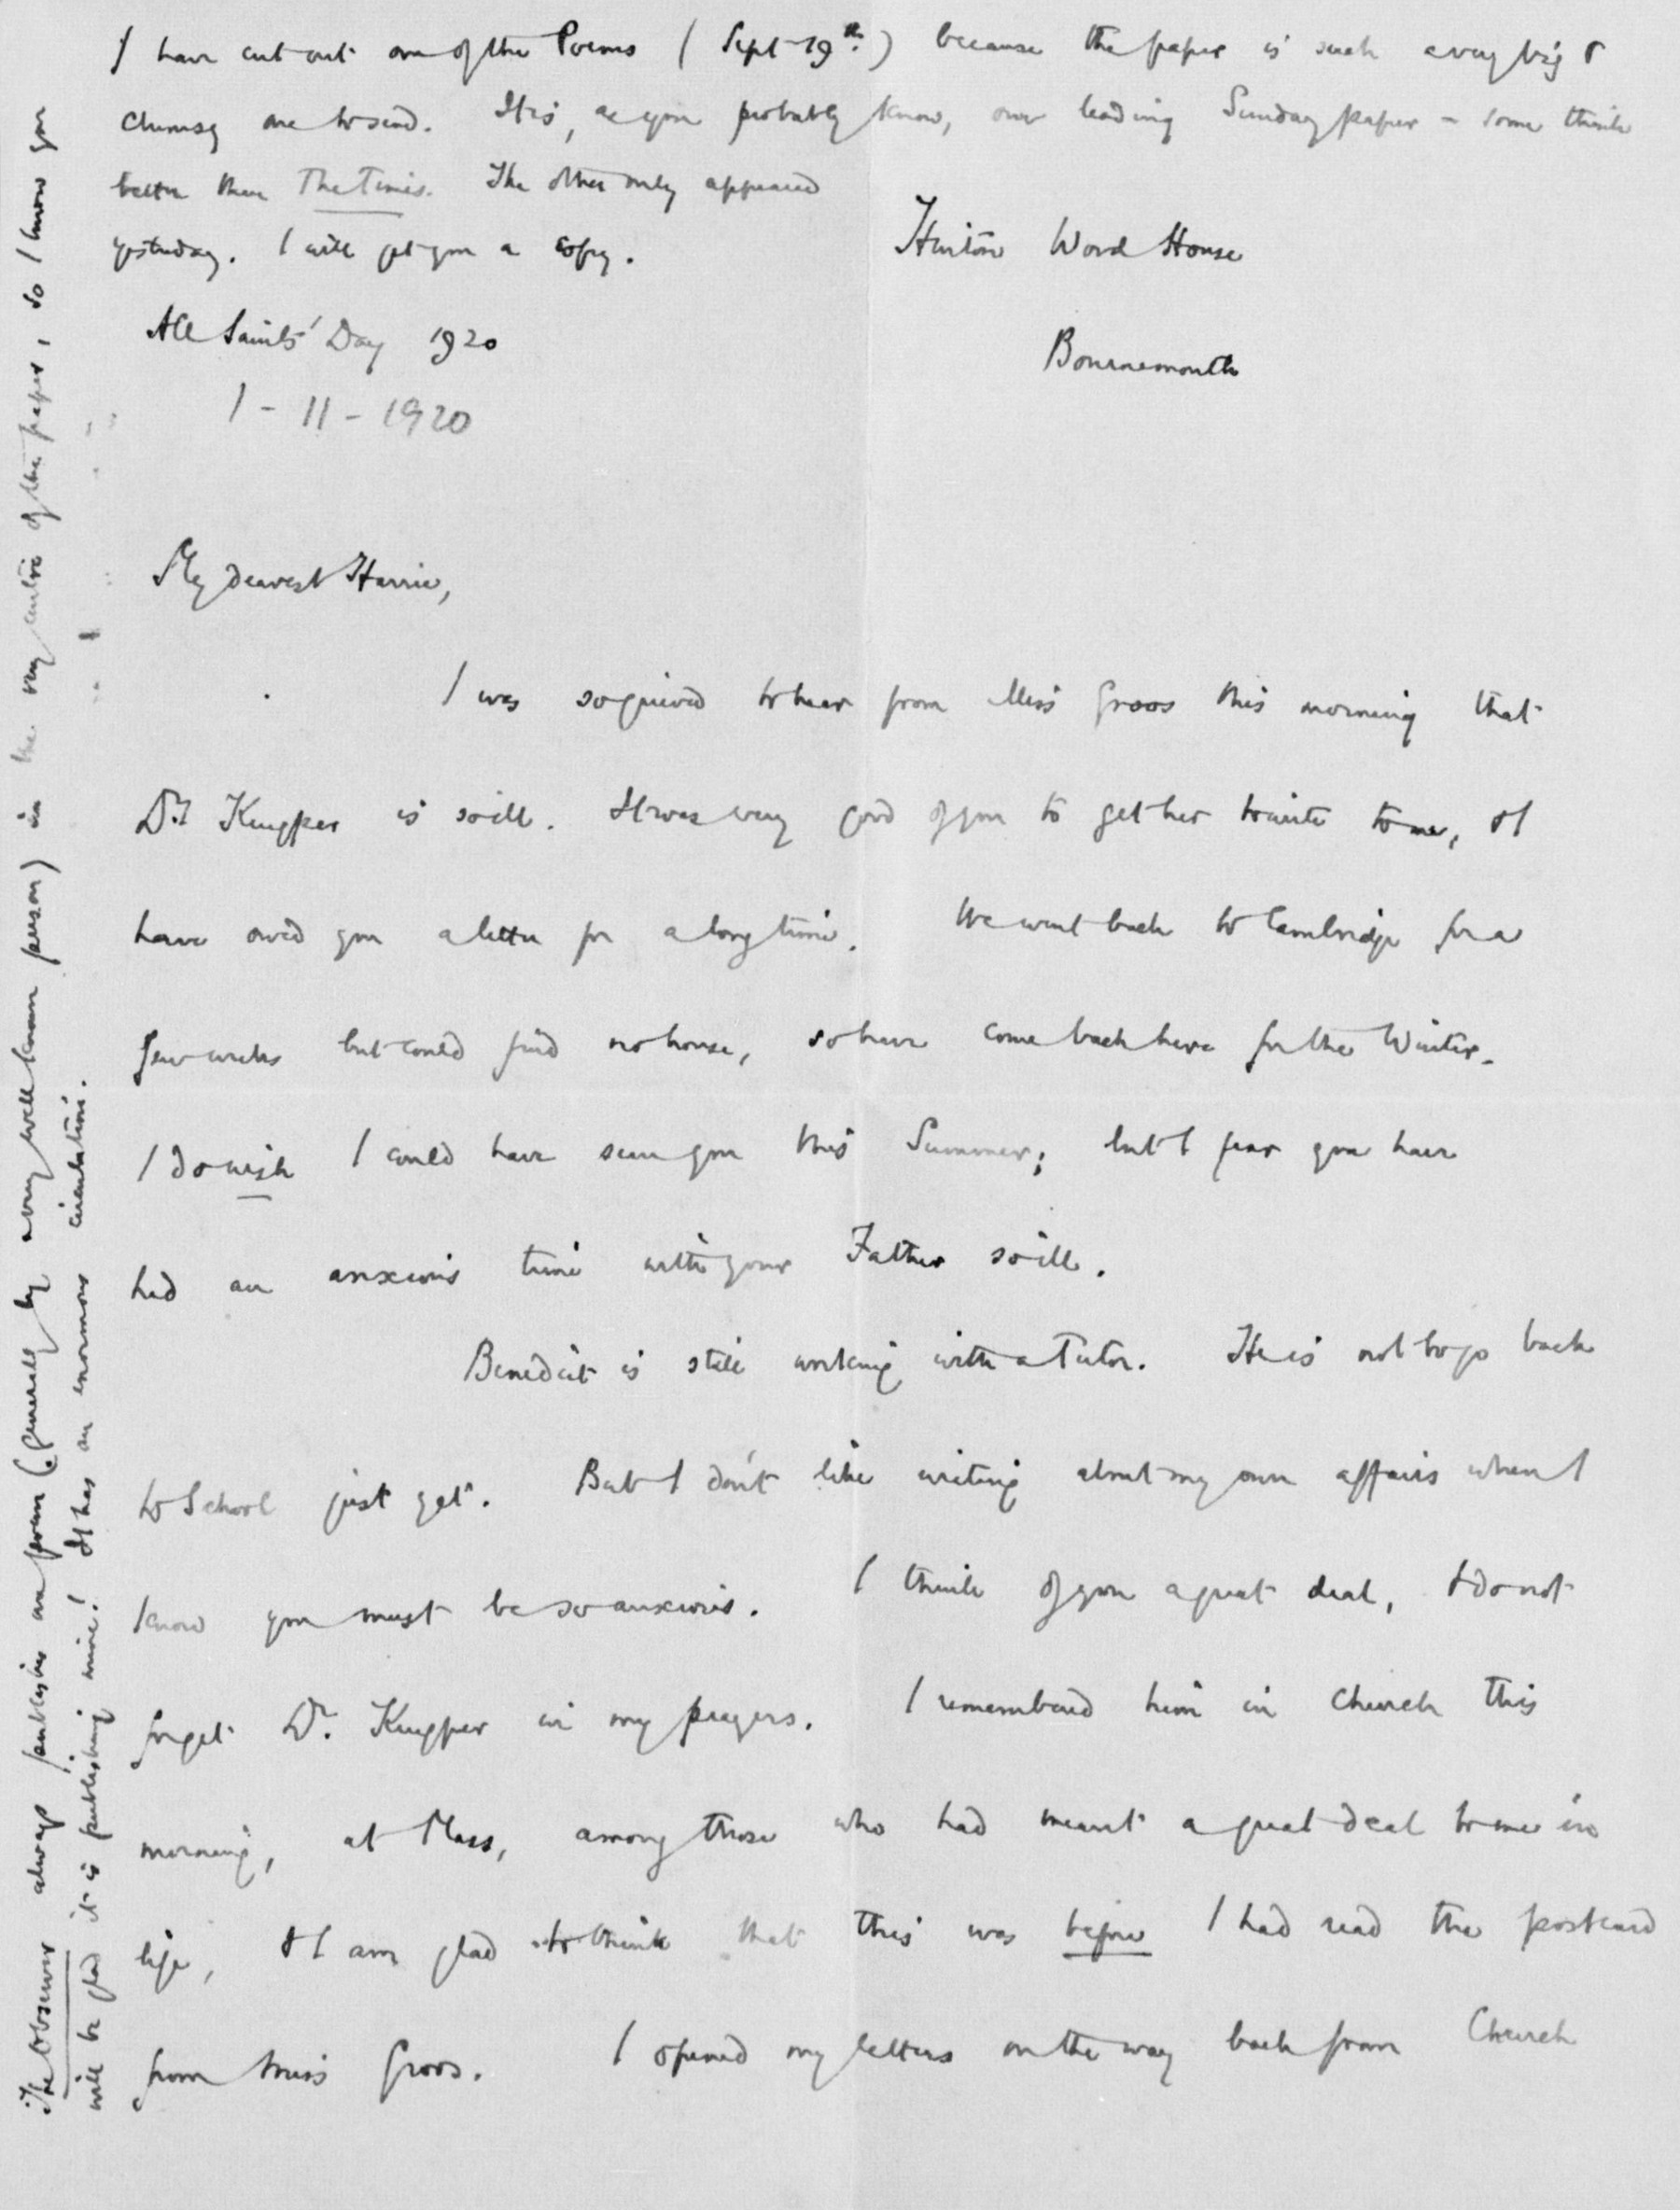 I have cut out one of the Poems (Sept 19th) because the paper is such a very big &
clumsy one to send. It is, as you probably know, our leading Sunday paper – some think
better than The Times. The other only appeared
yesterday. I will get you a copy.
Hinton Wood House
Bournemouth
All Saints' Day 1920
1 - 11 - 1920
My dearest Harrie,
I was so grieved to hear from Miss Groos this morning that
Dr. Kuyper is so ill. It was very good of you to get her to write to me, & I
have owed you a letter for a long time. We went back to Cambridge for a
few weeks but could find no house, so have come back here for the Winter.
I do wish I could have seen you this Summer; but I fear you have
had an anxious time with your Father so ill.
Benedict is still working with a Tutor. He is not to go back
to School just yet. But I don't like writing about my own affairs when I
know you must be so anxious. I think of you a great deal, & do not
forget Dr. Kuyper in my prayers. I remembered him in Church this
morning, at Mass, among those who had meant a great deal to me in
life, & I am glad to think that this was before I had read the postcard
from Miss Groos. I opened my letters on the way back from Church
The Observer always publishes one poem (generally by a very well known person) in the very centre of the paper, so I know you
will be glad it is publishing mine! It has an enormous circulation.